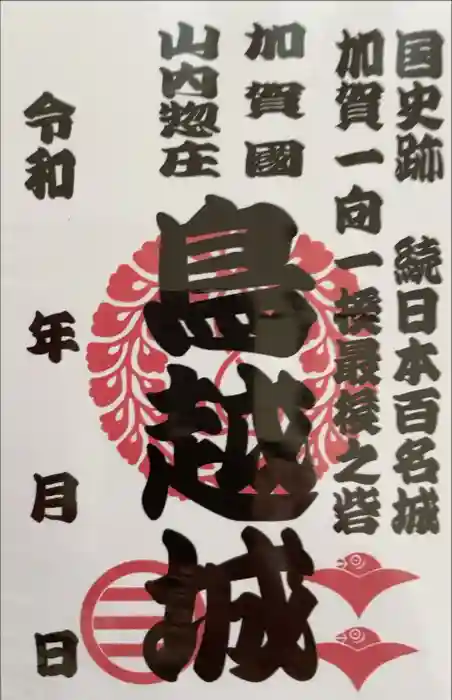 国史跡 続日本百名城
加賀一向一揆最後之砦
加賀國
山内惣庄
鳥越城
令和 年 月 日